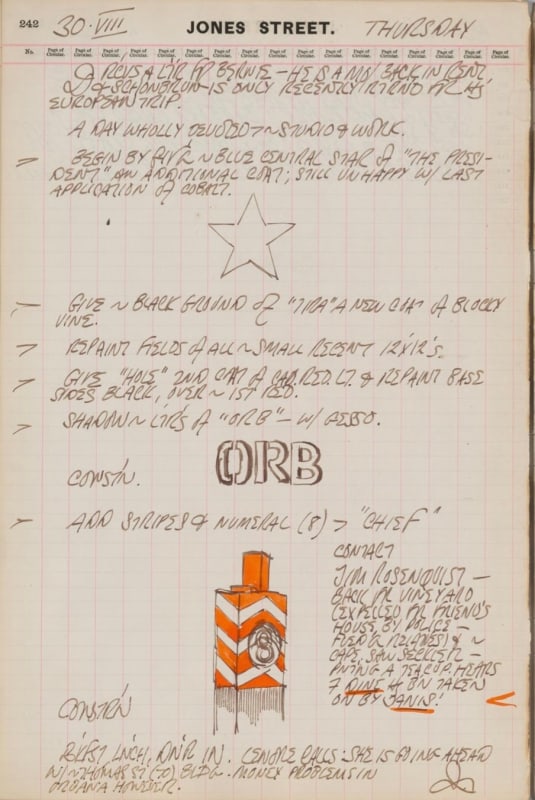 242 30·VIII JONES STREET. THURSDAY
No. Page of Circular. Page of Circular. Page of Circular. Page of Circular. Page of Circular. Page of Circular. Page of Circular. Page of Circular. Page of Circular. Page of Circular. Page of Circular. Page of Circular. Page of Circular. Page of Circular. Page of Circular. Page of Circular.
BERNIE – HE IS A MO. BACK IN
& SCHONBRUN IS ONLY RECENTLY HIS
EUROPEAN TRIP.
A DAY WHOLLY STUDIO & WORK.
BEGIN BY BLUE CENTRAL STAR OF "THE PRESI-
DENT" AN ADDITIONAL COAT; STILL UNHAPPY W/ LAST
APPLICATION OF COBALT.
GIVE ~ BLACK GROUND OF A NEW COAT OF BLOCKY
VINE.
REPAINT FIELDS OF ALL ~ SMALL RECENT 12"X12"S.
GIVE "HOLE" 2ND COAT OF CAD. RED. LT. & REPAINT BASE
SIDES BLACK, OVER ~ 1ST RED.
SHADOW ~ LTRS OF "ORB" – W/ GESSO.
ORB
ADD STRIPES & NUMERAL (8) > "CHIEF"
CONTACT
JIM ROSENQUIST –
BACK FR VINEYARD
(EXPELLED FR FRIEND'S
HOUSE BY POLICE –
& ~
CAPE. SAW SECKLER –
HEARS
DINE
ON BY JANIS!
8
IN. LENORE CALLS: SHE IS GOING AHEAD
W/ ~ THOMAS ST (70) BLDG. MONEY PROBLEMS IN
HOWEVER.